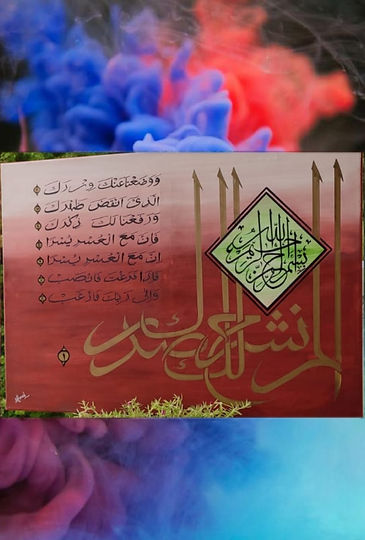 بسم الله الرحمن الرحيم
الم نشرح لك صدرك
١
ووضعنا عنك وزرك
الذي انقض ظهرك
ورفعنا لك ذكرك
فان مع العسر يسرا
ان مع العسر يسرا
فاذا فرغت فانصب
والى ربك فارغب